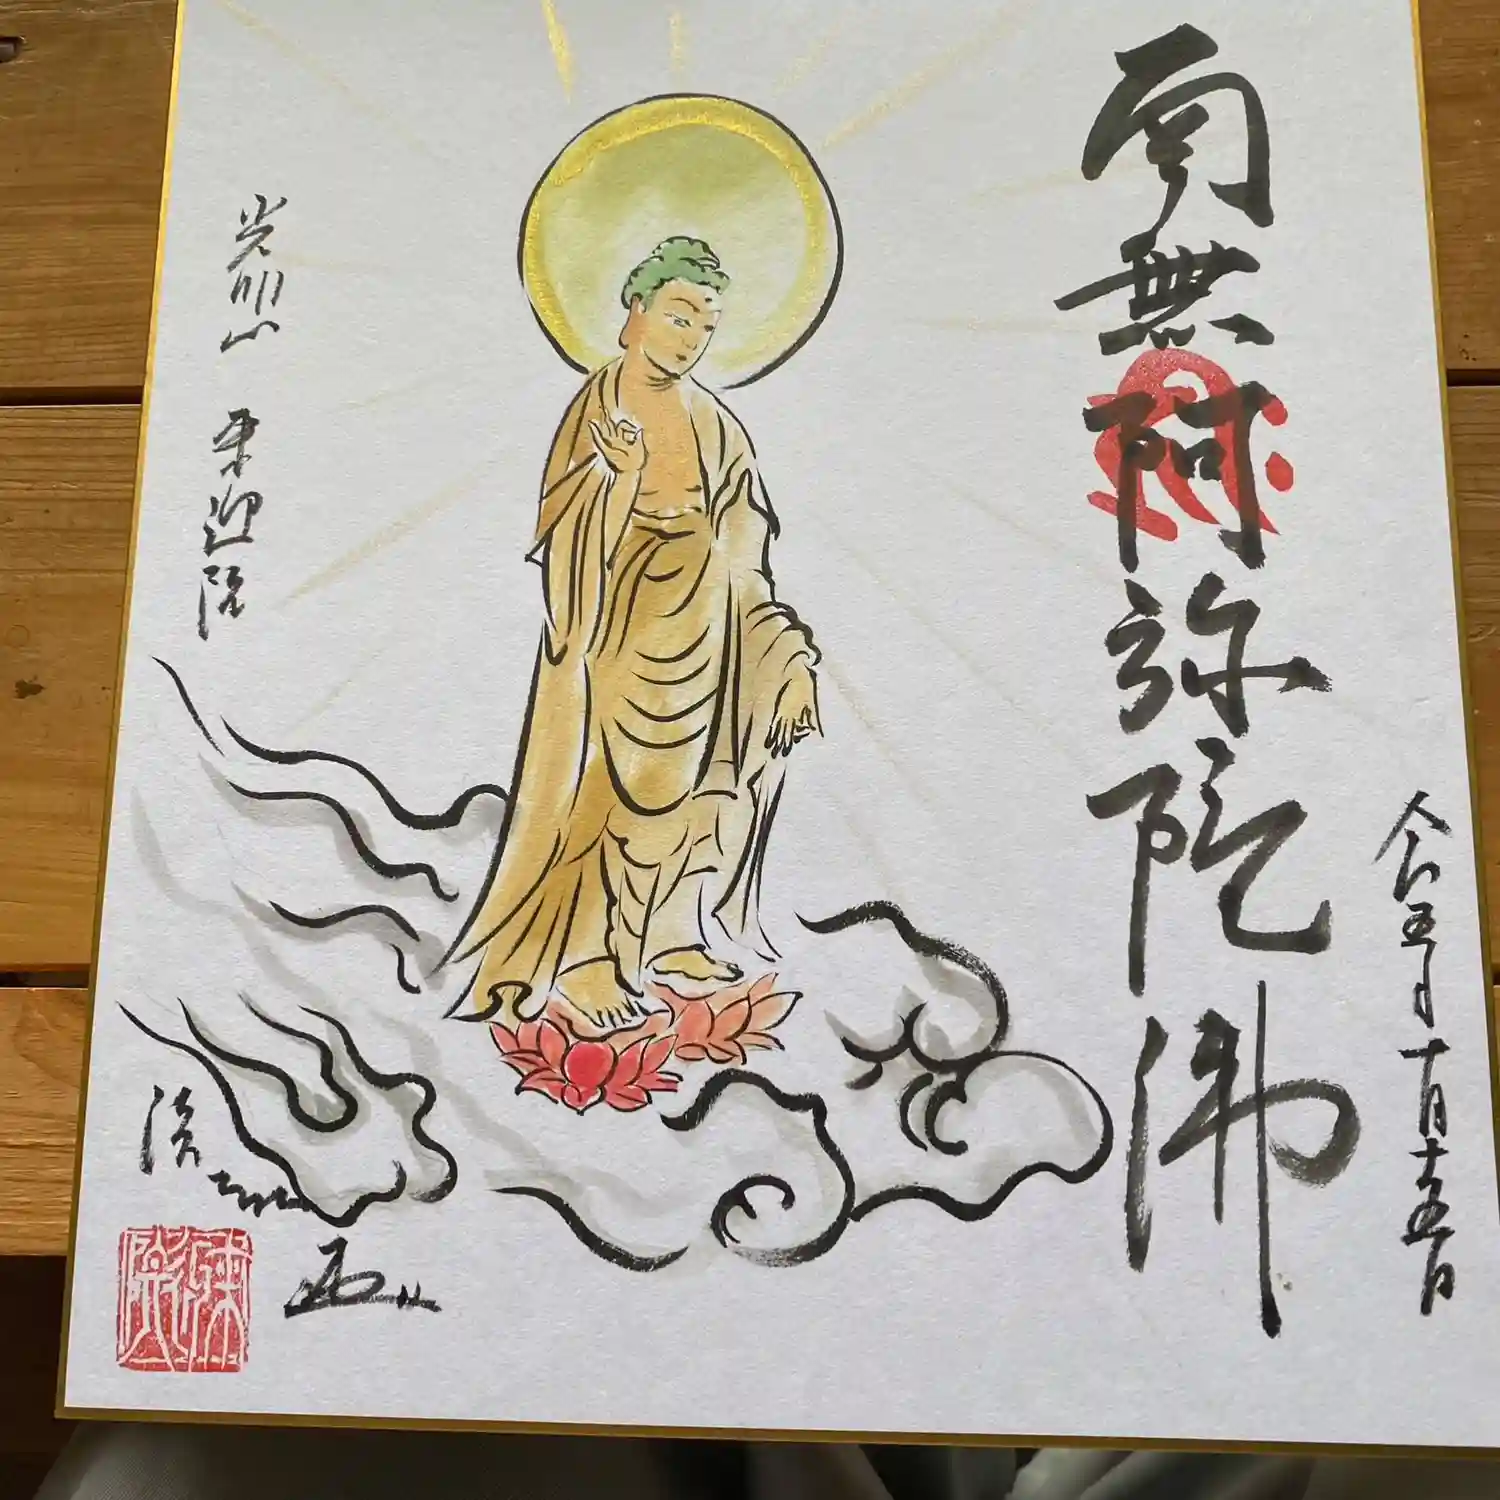 南無阿弥陀佛
令和五年十月十五日
光明山
来迎院